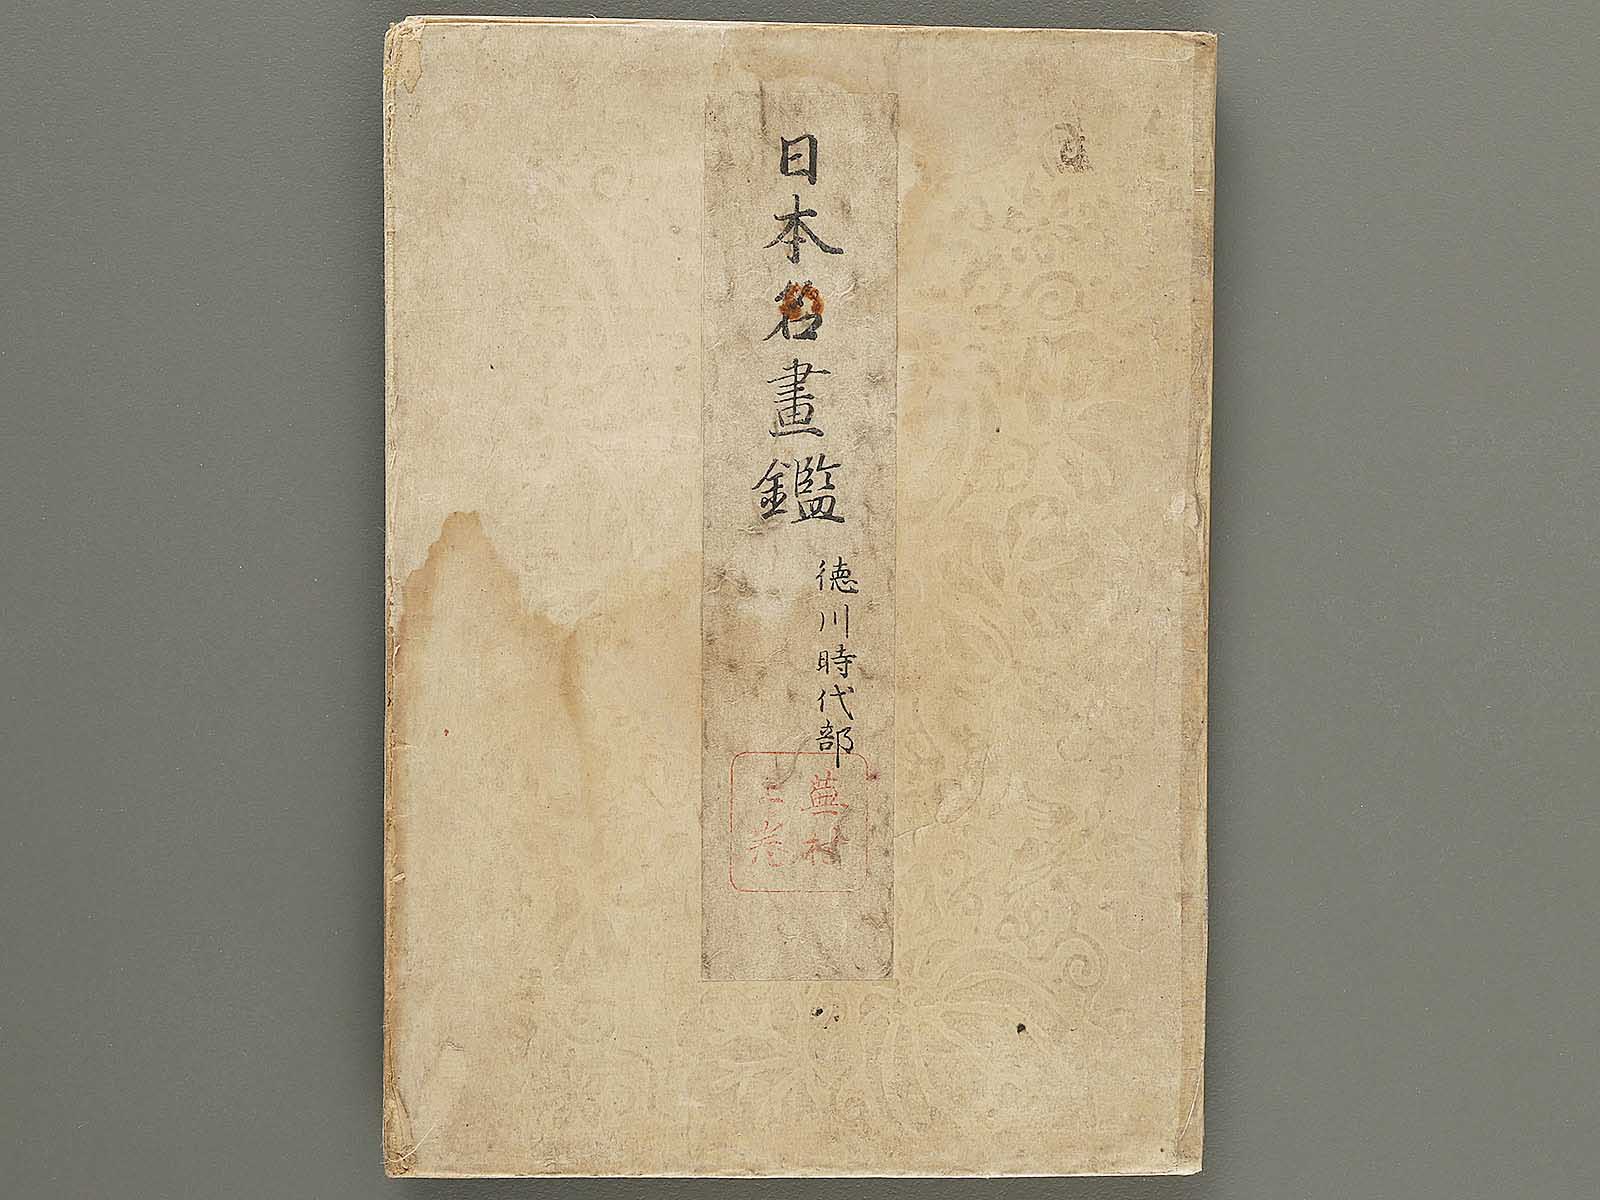 日本名畫鑑
徳川時代部
蕪村
三巻